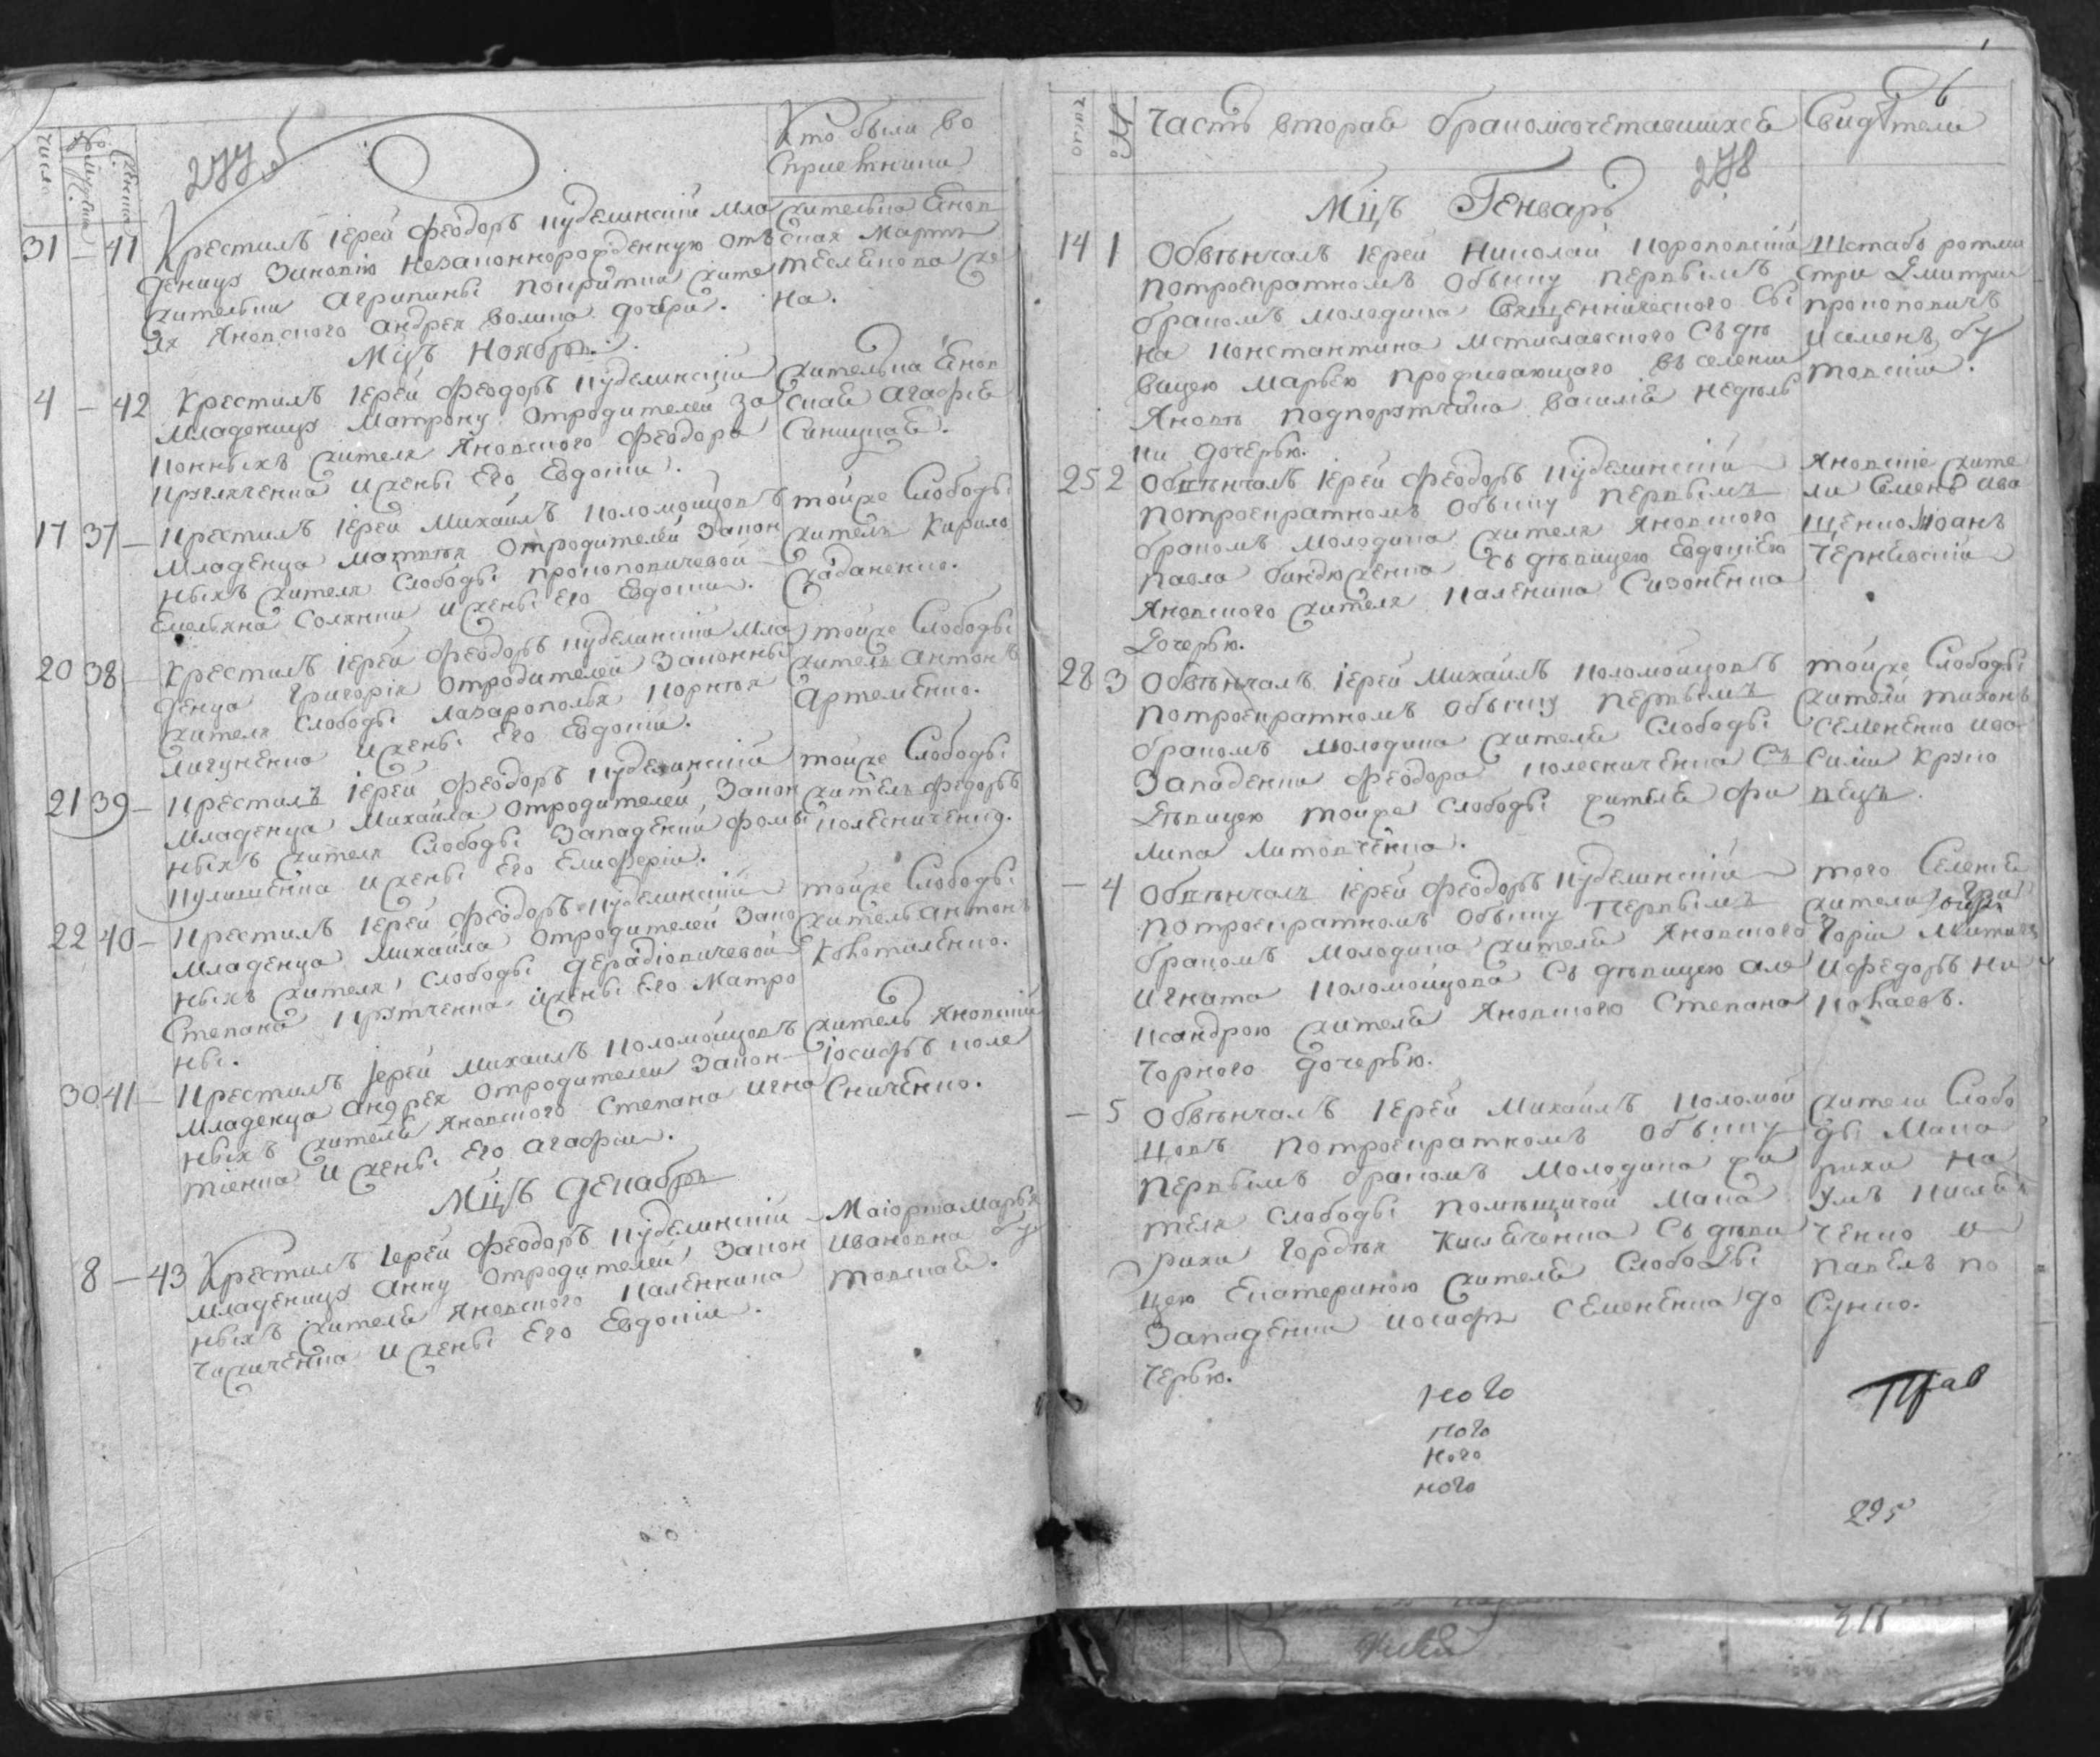 277
Кто были во
сприемники
Крестилъ Іерей Феодоръ Кубелинскій мла
деницу Зиновію незаконнорожденную отъ
жительки Агрипины покритки жите
ля Яновского Андрея Волика дочери.
жителька Янов
ская Марѳа
на.
31 — 41
Мцъ Ноябрь
4 — 42
Крестилъ Іерей Феодоръ Кубелинскій
младеницу Матрону отродителей за
конныхъ жителя Яновского Феодора
и жены Его Евдокіи.
жителька Янов
ская Агафія
Синицкая.
17 37 —
Крестилъ Іерей Михаилъ Коломойцовъ
младенца Матѳея отродителей закон
ныхъ жителя Слободы Прокоповичевой
Емельяна Солянки и жены Его Евдокіи.
тойже Слободы
житель Кирило
Жабаненко.
20 38 —
Крестилъ Іерей Феодоръ Кубелинскій мла
денца Григорія отродителей законны
жителя Слободы Лазарополья Корнѣя
Лигуненка и жены Его Евдокіи.
тойже Слободы
житель Антонъ
Артеменко.
21 39 —
Крестилъ Іерей Феодоръ Кубелинскій
младенца Михаила отродителей закон
ныхъ жителя Слободы Западенки Фомы
Кулишенка и жены Его Елиферіи.
тойже Слободы
житель Федоръ
Колесниченко.
22 40 —
Крестилъ Іерей Феодоръ Кубелинскій
младенца Михаила отродителей зако
ныхъ жителя Слободы Дерадіовичевой
Степана Крутченка и жены Его Матро
ны.
тойже Слободы
житель Антонъ
30 41 —
Крестилъ Іерей Михаилъ Коломойцовъ
младенца Андрея отродителей закон
ныхъ жителя Яновского Степана Игна
тіенка и жены Его Агафіи.
житель Яновскій
Іосифъ Коле
сниченко.
Мцъ Декабрь
8 — 43
Крестилъ Іерей Феодоръ Кубелинскій
младеницу Анну отродителей закон
ныхъ жителя Яновского Каленника
Чижиченка и жены Его Евдокіи.
Маіорша Марья
Ивановна Бу
товская.
6
Часть вторая бракомсочетавшихся
Свидѣтели
278
Мцъ Генварь
14 1
Обвѣнчалъ Іерей Николай Корополскій
потроекратномъ обыску первымъ
бракомъ молодика Священнического сы
на Константина Мстиславского съ дѣ
вицею Марьею проживающаго въ селеніи
Яновѣ подпорутчика Василія Недѣль
ки дочерью.
Штабъ ротми
стри Дмитрій
Прокоповичъ
и Семенъ Бу
товскій.
25 2
Обвѣнчалъ Іерей Феодоръ Кубелинскій
потроекратномъ обыску первымъ
бракомъ молодика жителя Яновского
Павла Биндюженка съ дѣвицею Евдокією
Яновского жителя Каленика Сизоненка
дочерью.
Яновскіе жите
ли Семенъ Ива
щенко Іоанъ
Чернѣвскій
28 3
Обвѣнчалъ Іерей Михаилъ Коломойцовъ
потроекратномъ обыску первымъ
бракомъ молодика жителя Слободы
Западенки Феодора Колесниченка съ
дѣвицею тойже Слободы жителя Фи
липа Литовченка.
тойже Слободы
жители Тихонъ
Семененко и Ва
силій Круко
вецъ.
— 4
Обвѣнчалъ Іерей Феодоръ Кубелинскій
потроекратномъ обыску первымъ
бракомъ молодика жителя Яновского
Игната Коломойцова съ дѣвицею Але
ксандрою жителя Яновского Степана
Чорного дочерью.
того Селенія
жители
горій
и Федоръ Ни
— 5
Обвѣнчалъ Іерей Михаилъ Коломой
цовъ потроекратномъ обыску
первымъ бракомъ молодика жи
теля Слободы помѣщичой Мака
рихи Гордѣя Кисличенка съ дѣви
цею Екатериною жителя Слободы
Западенки Іосифа Семененка до
черью.
жители Слобо
ды Мака
рихи На
умъ Кисли
ченко и
Павелъ По
сунко.
ного
ного
ного
ного
295